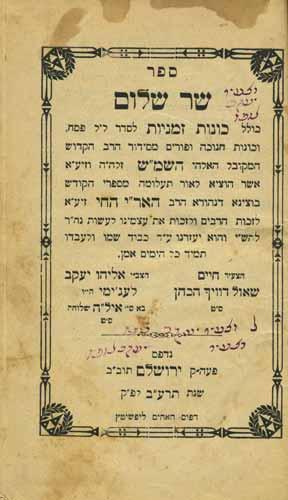 ספר
שר שלום
כולל כונות זמניות לסדר ליל פסח,
וכונות חנוכה ופורים מסידור הרב הקדוש
המקובל האלהי השמ"ש זלה"ה וזיע"א
אשר הוציא לאור תעלומה מספרי הקודש
בוצינא דנהורא הרב האר"י החי זיע"א
לזכות הרבים ולזכות את עצמינו לעשות נח"ר
להשי"ת והוא יעזרנו ע"ד כבוד שמו ולעבדו
תמיד כל הימים אמן.
הצעיר חיים הצבי אליהו יעקב
שאול דוויך הכהן לעגימי הי"ו
ס"ט בא סי' איל"ה שלוחה
ס"ט
נדפס
פעה"ק ירושלם תוב"ב
שנת תרע"ב לפ"ק
דפוס האחים ליפשיטץ